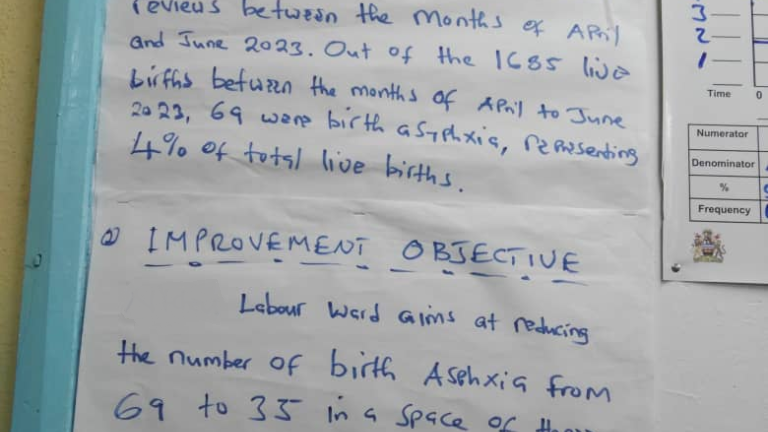 reviews between the months of April
and June 2023. Out of the 1685 live
births between the months of April to June
2023, 69 were birth asyphxia, representing
4% of total live births.
2) IMPROVEMENT OBJECTIVE
Labour Ward aims at reducing
the number of birth Asphxia from
69 to 35 in a space of
3
2
1
Time 0
Numerator
Denominator
%
Frequency